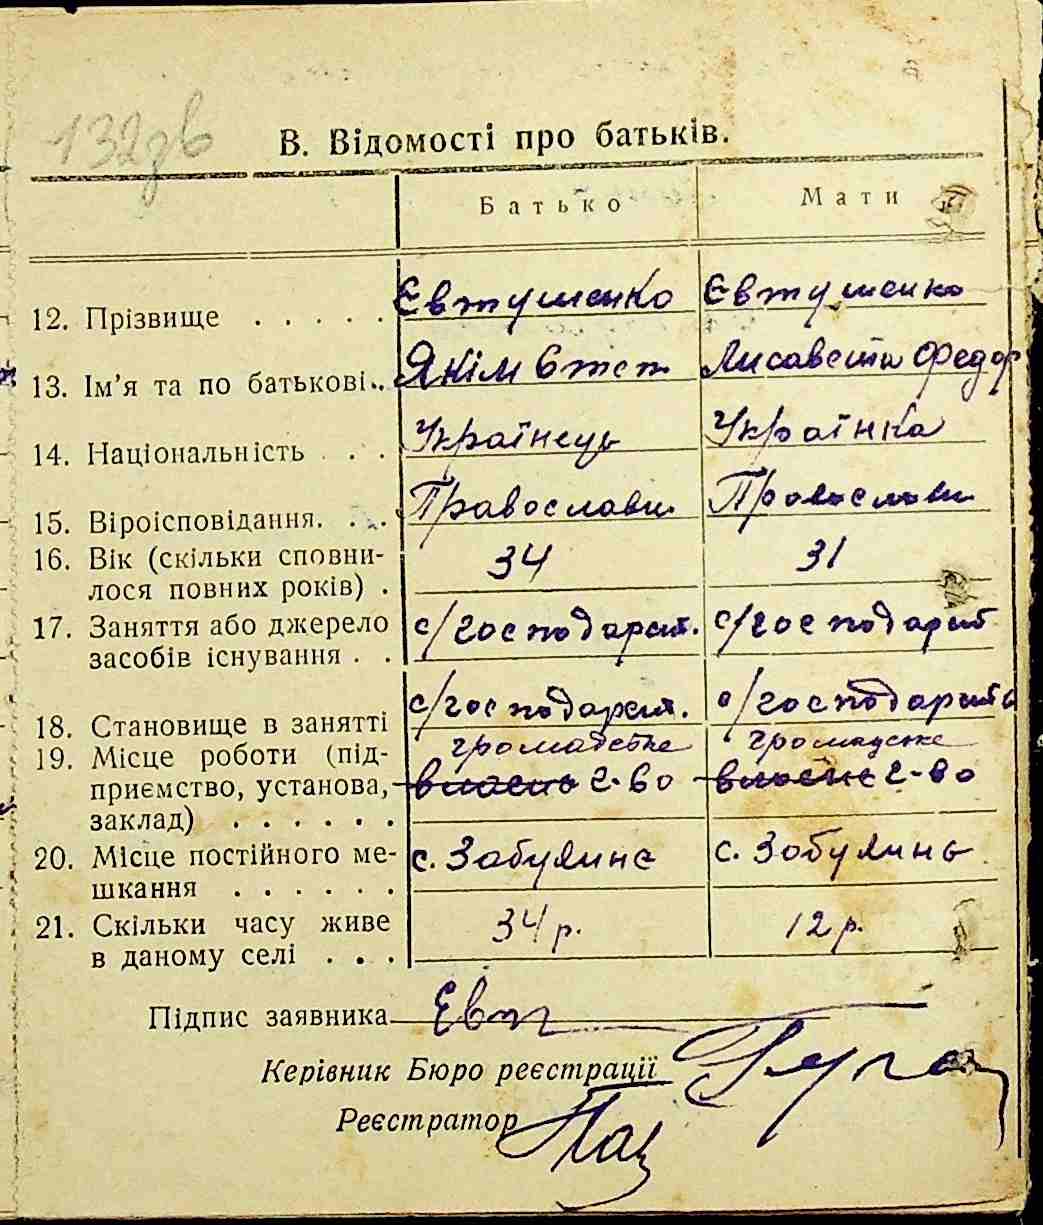 132зв
В. Відомості про батьків.
Батько Мати
12. Прізвище . . . . . Євтушенко Євтушенко
13. Ім’я та по батькові . . Якім Євст Лисавета Федор
14. Національність . . . Українець Українка
15. Віроісповідання. . . . Православн. Православн
16. Вік (скільки сповни-
лося повних років) . 34 31
17. Заняття або джерело с/господарст. с/господарст
засобів існування . .
18. Становище в занятті с/господарст. с/господарств
19. Місце роботи (під- громадське громадське
приємство, установа, власне г-во власне г-во
заклад) . . . . . .
20. Місце постійного ме- с. Забуяння с. Забуянь
шкання . . . . . .
21. Скільки часу живе 34 р. 12 р.
в даному селі . . .
Підпис заявника Євт
Керівник Бюро реєстрації
Реєстратор